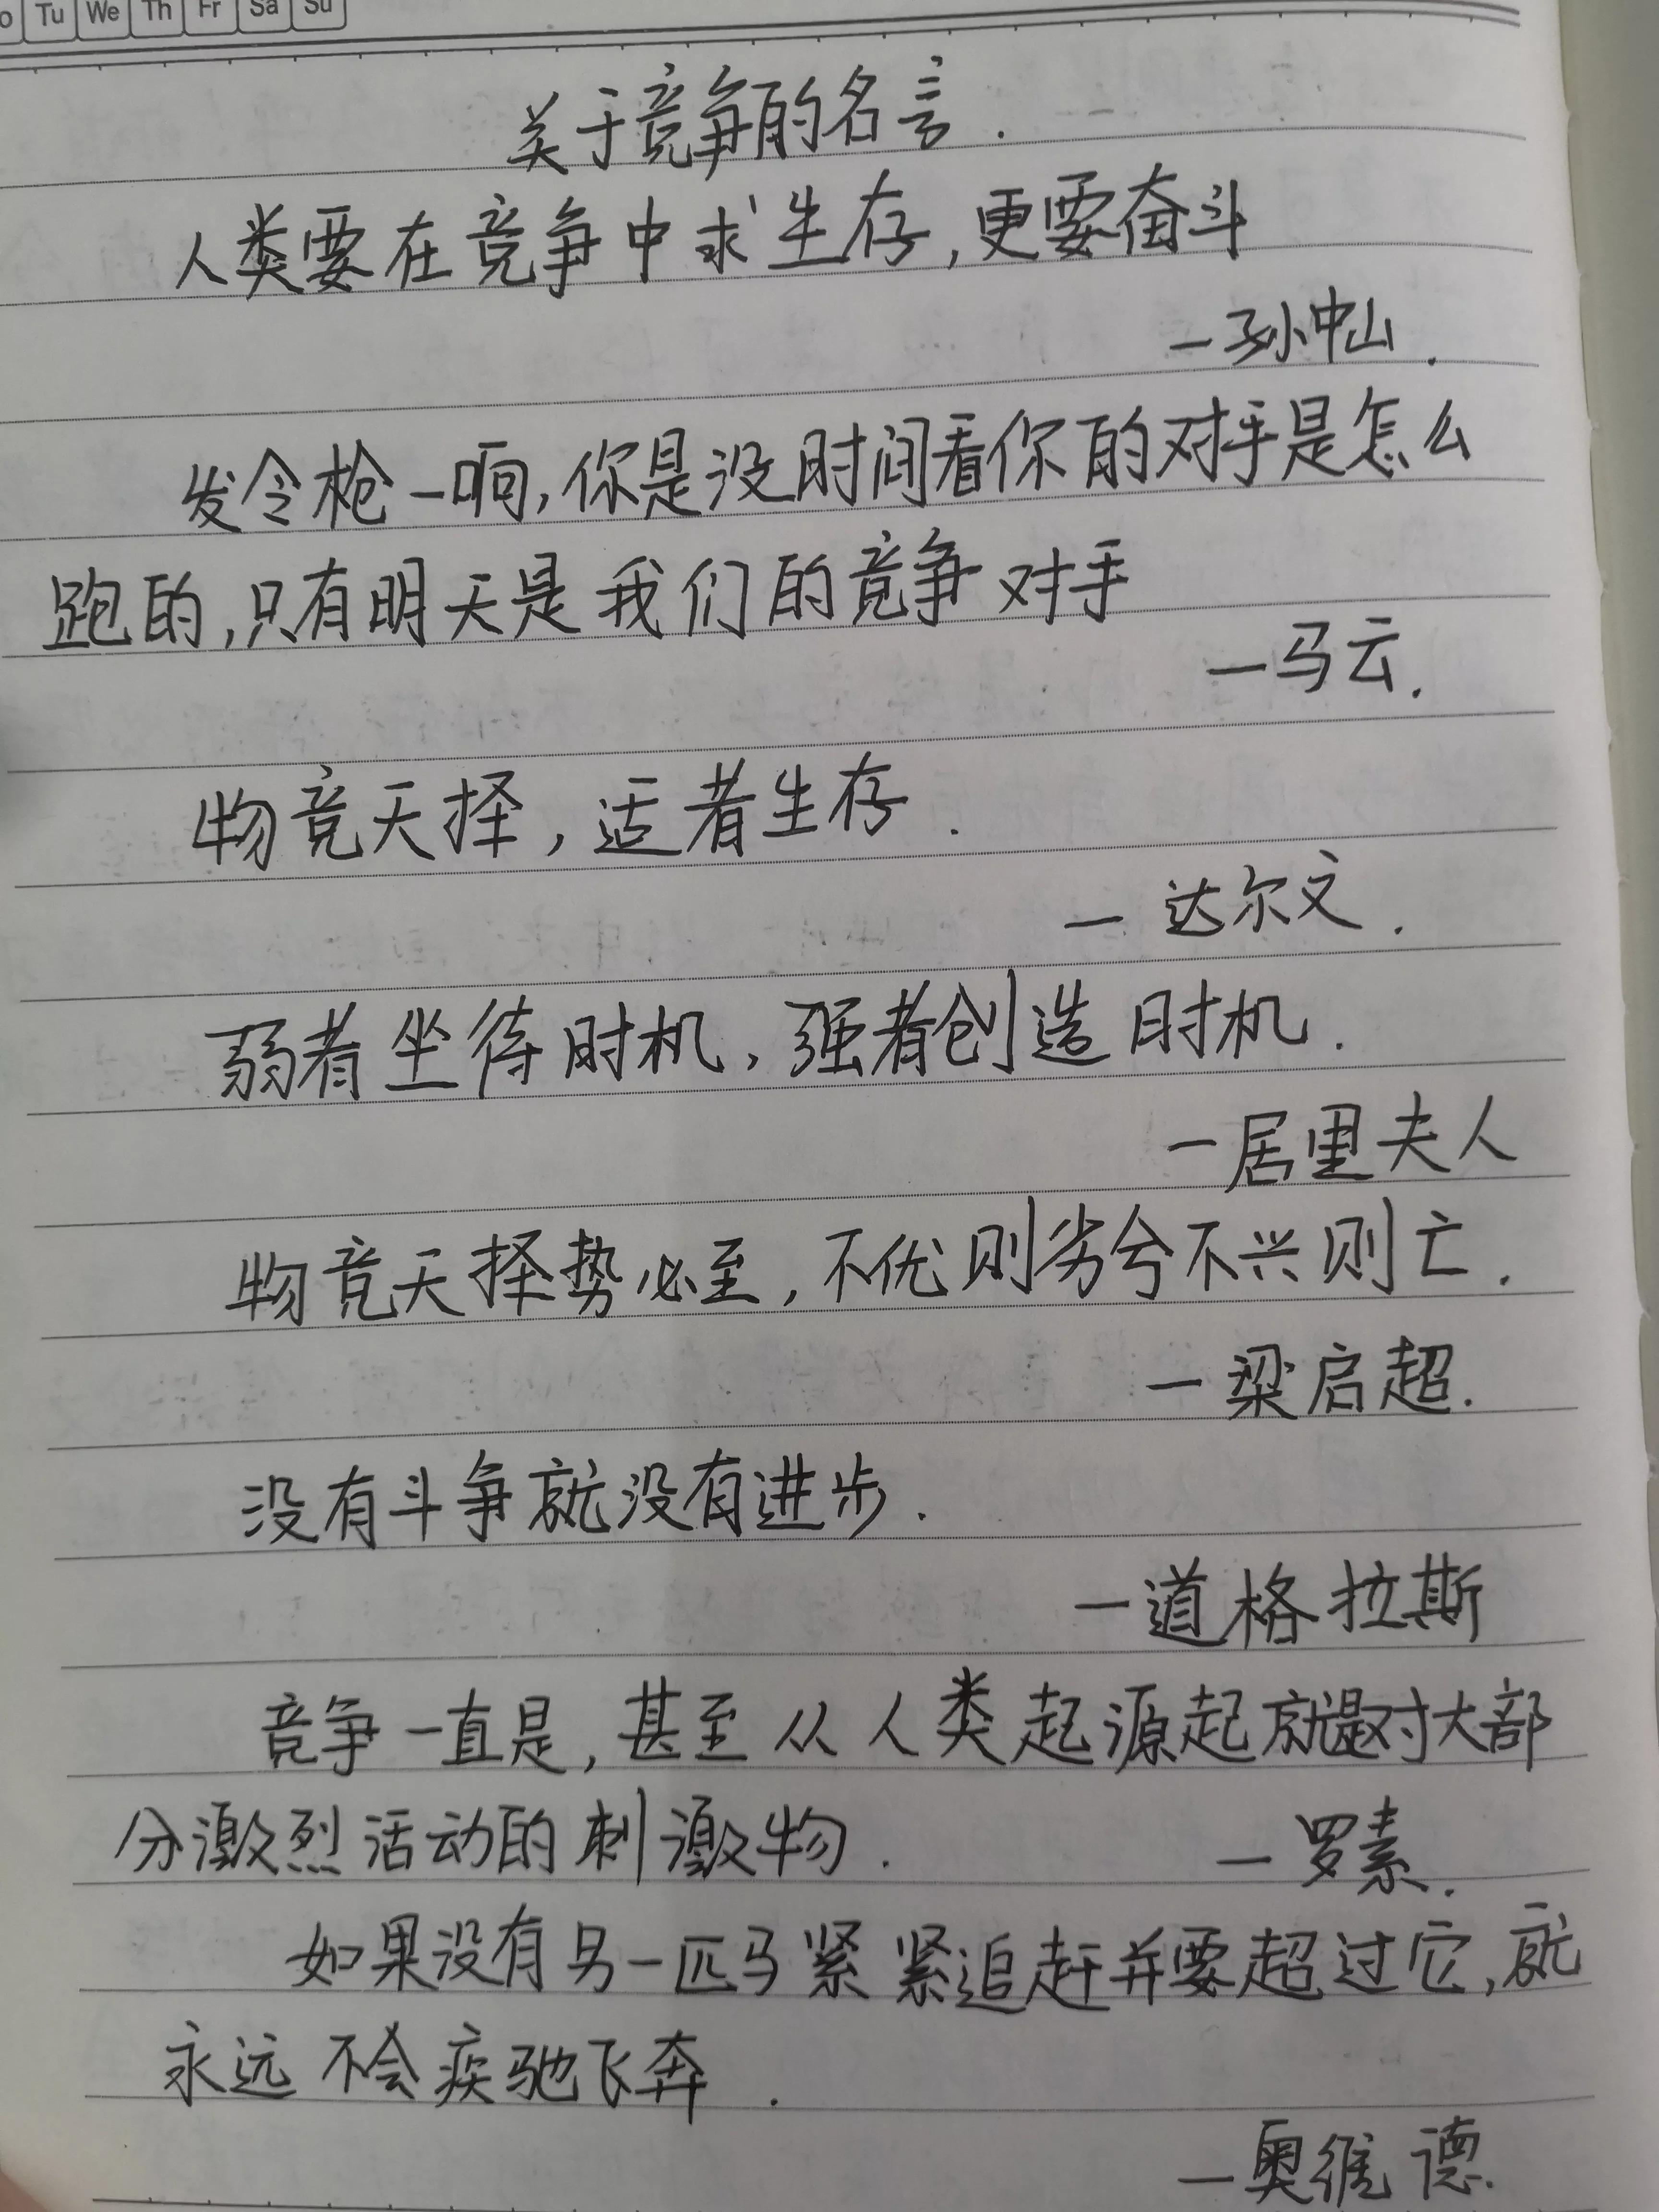 Tu We Th Fr Sa Su
关于竞争的名言.
人类要在竞争中求生存,更要奋斗
—孙中山.
发令枪一响,你是没时间看你的对手是怎么
跑的,只有明天是我们的竞争对手
—马云.
物竞天择,适者生存.
—达尔文.
弱者坐待时机,强者创造时机.
—居里夫人
物竞天择势必至,不优则劣兮不兴则亡.
—梁启超.
没有斗争就没有进步.
—道格拉斯
竞争一直是,甚至从人类起源起就是对大部
分激烈活动的刺激物.
—罗素.
如果没有另一匹马紧紧追赶并要超过它,就
永远不会疾驰飞奔.
—奥维德.